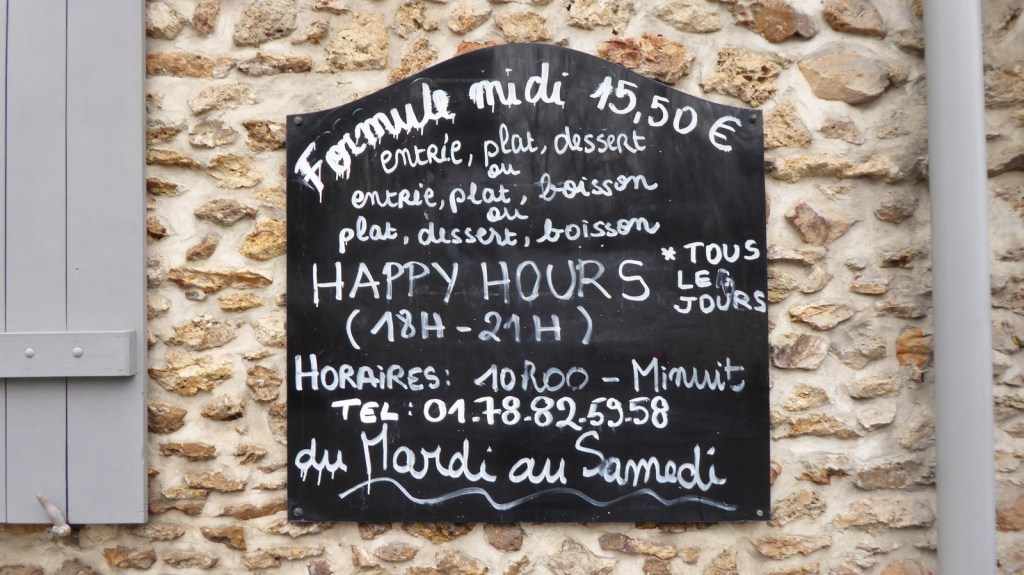 Formule midi 15,50 €
entrée, plat, dessert
ou
entrée, plat, boisson
ou
plat, dessert, boisson
HAPPY HOURS
(18H - 21H)
* TOUS
LES
JOURS
HORAIRES: 10H00 - Minuit
TEL: 01.78.82.59.58
du Mardi au Samedi